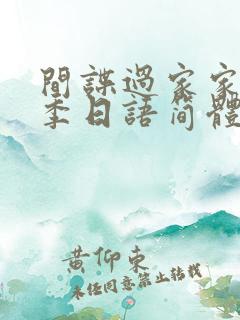 間諜過家家
季日語简體
黄仰東
未任同意禁止转载